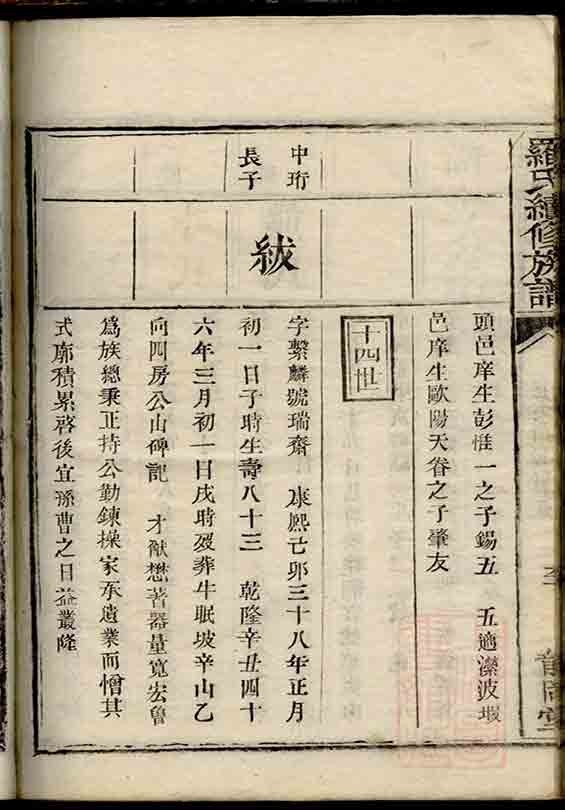 羅氏續修族譜
頭邑庠生彭惟一之子錫五　五適濚波塅
邑庠生歐陽天眷之子肇友
十四世
中珩
長子
紱
字繫麟號瑞齋　康熙己卯三十八年正月
初一日子時生壽八十三　乾隆辛丑四十
六年三月初一日戌時歿葬牛眠坡辛山乙
向四房公山碑記　才猷懋著器量寬宏魯
爲族總秉正持公勤鍊操家承遺業而憎其
式廓積累啓後宜孫曹之日益叢隆